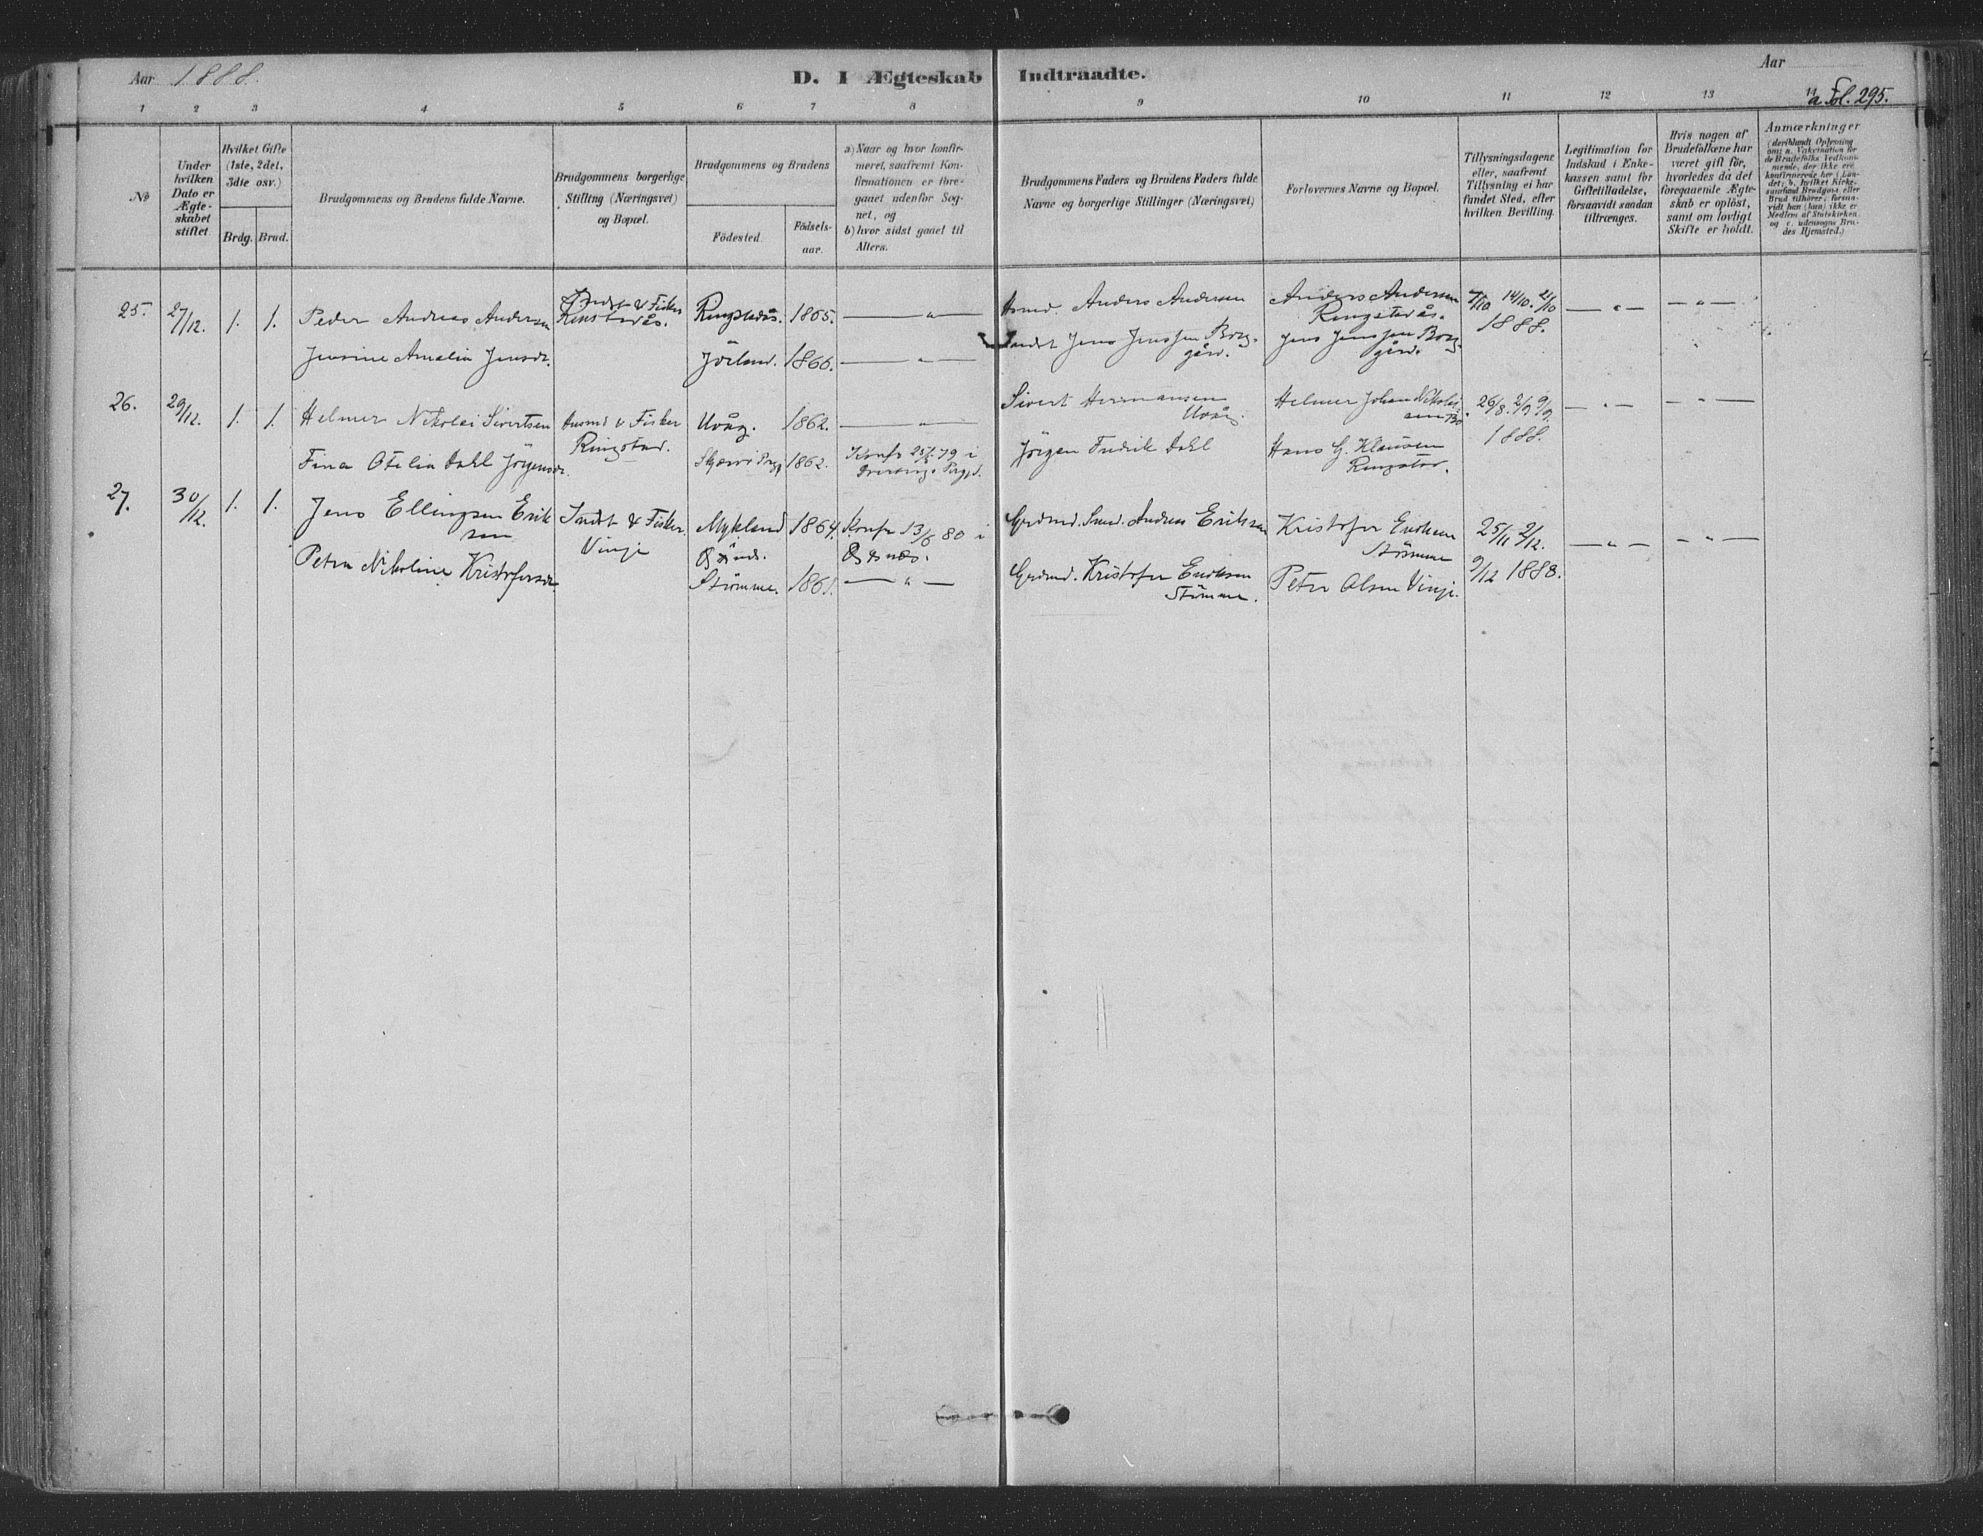 Aar 1888.
D. I Ægteskab Indtraadte.
Aar
a. Fol. 295.
1 2 3 4 5 6 7 8 9 10 11 12 13 14
No
Under hvilken Dato er Ægte-skabet stiftet.
Hvilket Gifte (1ste, 2det, 3die osv.)
Brdg. Brud.
Brudgommens og Brudens fulde Navne.
Brudgommens borgerlige Stilling (Næringsvei) og Bopæl.
Brudgommens og Brudens
Födested.
Födsels-aar.
a) Naar og hvor konfir-meret, saafremt Kon-firmationen er fore-gaaet udenfor Sog-net, og
b) hvor sidst gaaet til Alters.
Brudgommens Faders og Brudens Faders fulde Navne og borgerlige Stillinger (Næringsvei)
Forlovernes Navne og Bopæl.
Tillysningsdagene eller, saafremt Tillysning ei har fundet Sted, efter hvilken Bevilling.
Legitimation for Indskud i Enke-kassen samt for Giftetilladelse, forsaavidt saadan tiltrænges.
Hvis nogen af Brudefolkene har været gift för, hvorledes da det foregaaende Ægte-skab er oplöst, samt om lovligt Skifte er holdt.
Anmærkninger
(deriblandt Oplysning om: a. Vakcination for de Brudefolks Vedkom-mende, der ikke ere konfirmerede her i Lan-det; b. hvilket Kirke-samfund Brudgom eller Brud tilhörer, forsaa-vidt han (hun) ikke er Medlem af Statskirken, og c. udensogns Bru-des Hjemsted.)
25. 27/12. 1. 1. Peder Andreas Andersen Indst & Fisker Ringstadås. Ringstadås. 1865. — „ — Anders Andersen Anders Andersen Ringstadås. 7/10 14/10. 21/10 1888. — „ — — „ —
Jensine Amalia Jensdr. Jörland. 1866. — „ — Indst Jens Jenssen Borg-gård. Jens Jenssen Borg-gård.
26. 29/12. 1. 1. Helmer Nikolai Sivertsen Husmd & Fisker Ringstad. Uvåg. 1862. — „ — Sivert Hermansen Uvåg. Helmer Johan Nikolai-sen Bö. 26/8. 2/9 9/9. 1888. — „ — — „ —
Fina Otelia Dahl Jörgensdr. 1862. Konf. 79 i Jörgen Fredrik Dahl Hans G. Klausen Ringstad.
27. 30/12. 1. 1. Jens Ellingsen Erik-sen Indst & Fisker Vinje Mykland Öxnäs. 1864. Konf. 13/6 80 i Öxnæs. Grdmd. Smed. Andreas Eriksen Kristofer Eriksen Strömme 25/11 2/12. 9/12 1888. — „ — — „ —
Petra Nikoline Kristofersdr. Strömme. 1861. — „ — Grdmd. Kristofer Eriksen Strömme. Peter Olsen Vinje.